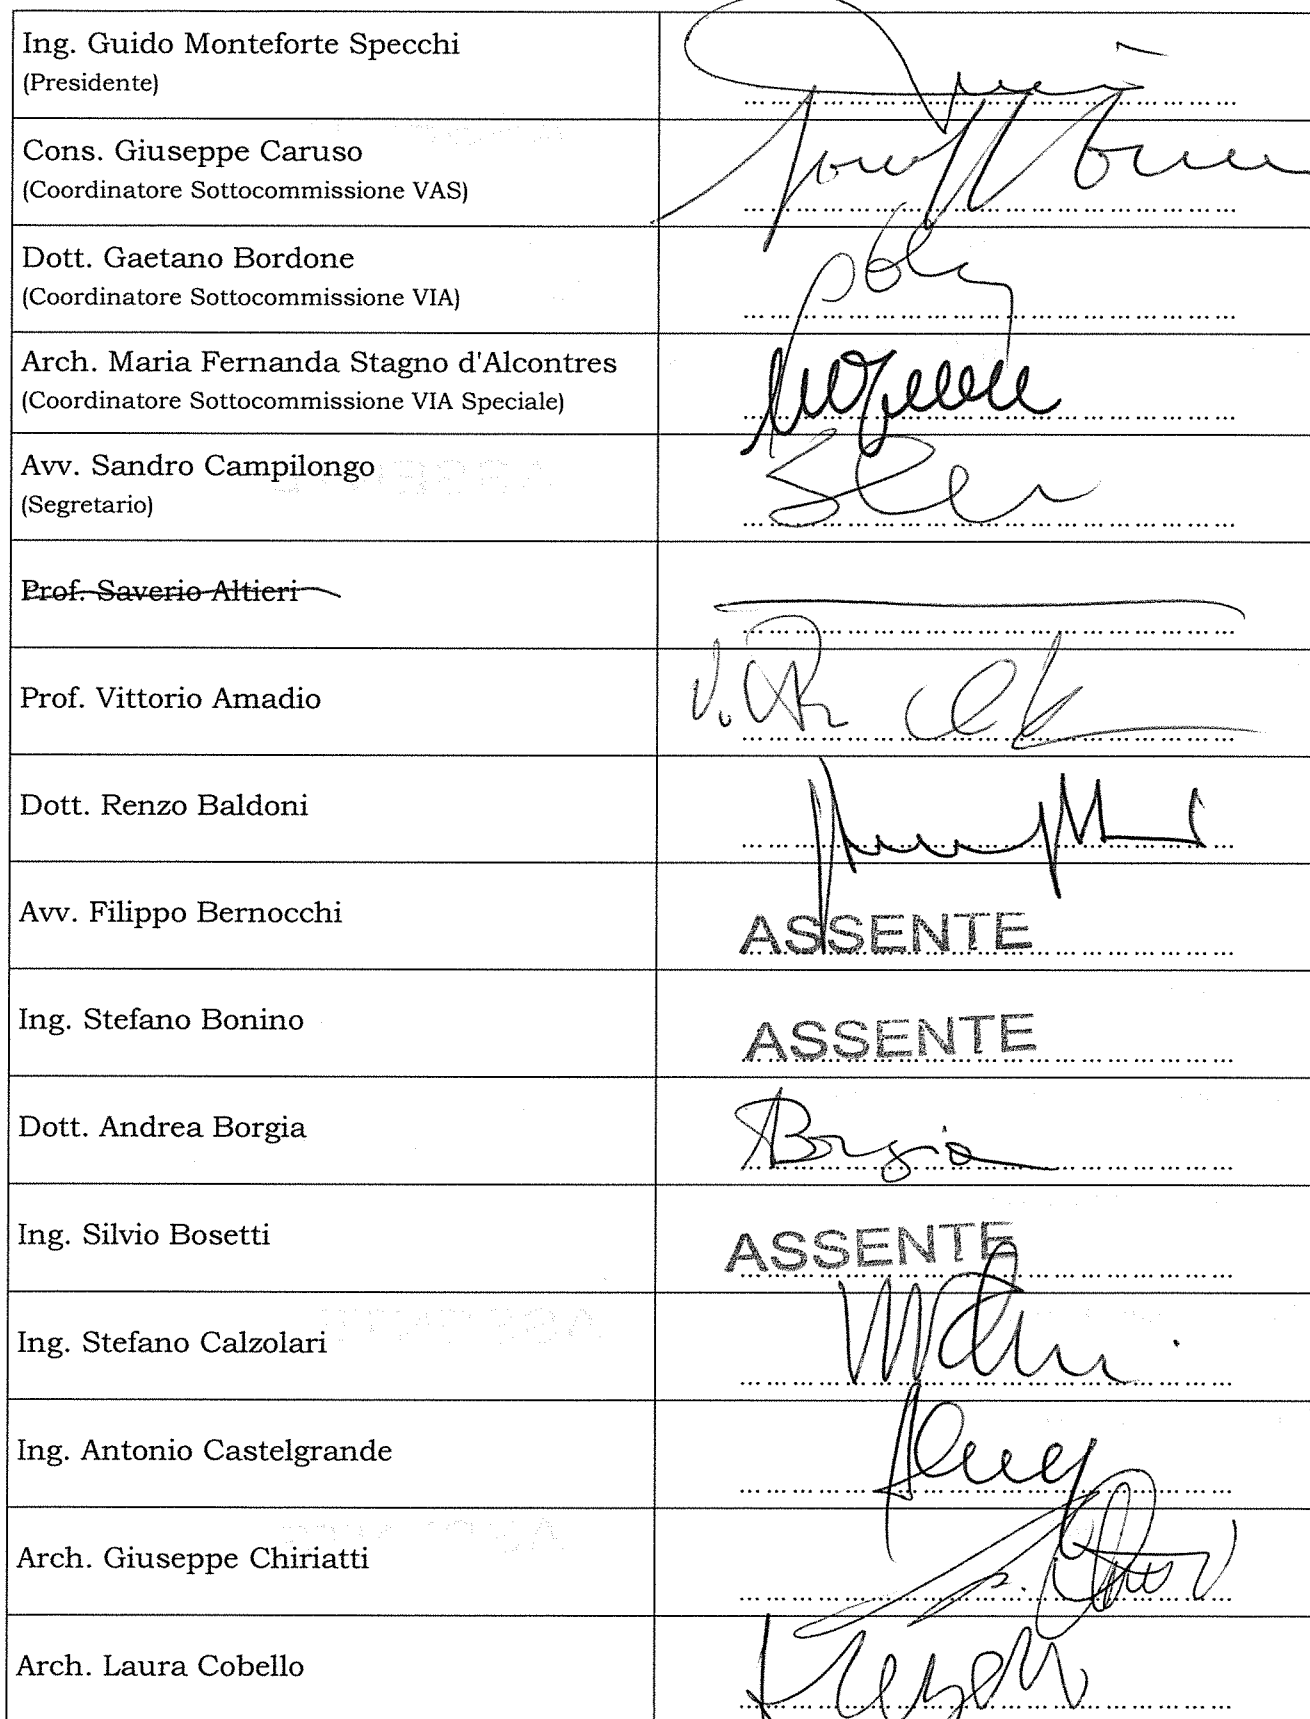 Ing. Guido Monteforte Specchi
(Presidente)
Cons. Giuseppe Caruso
(Coordinatore Sottocommissione VAS)
Dott. Gaetano Bordone
(Coordinatore Sottocommissione VIA)
Arch. Maria Fernanda Stagno d'Alcontres
(Coordinatore Sottocommissione VIA Speciale)
Avv. Sandro Campilongo
(Segretario)
Prof. Saverio Altieri
Prof. Vittorio Amadio
Dott. Renzo Baldoni
Avv. Filippo Bernocchi
ASSENTE
Ing. Stefano Bonino
ASSENTE
Dott. Andrea Borgia
Borgia
Ing. Silvio Bosetti
ASSENTE
Ing. Stefano Calzolari
Ing. Antonio Castelgrande
Arch. Giuseppe Chiriatti
Arch. Laura Cobello